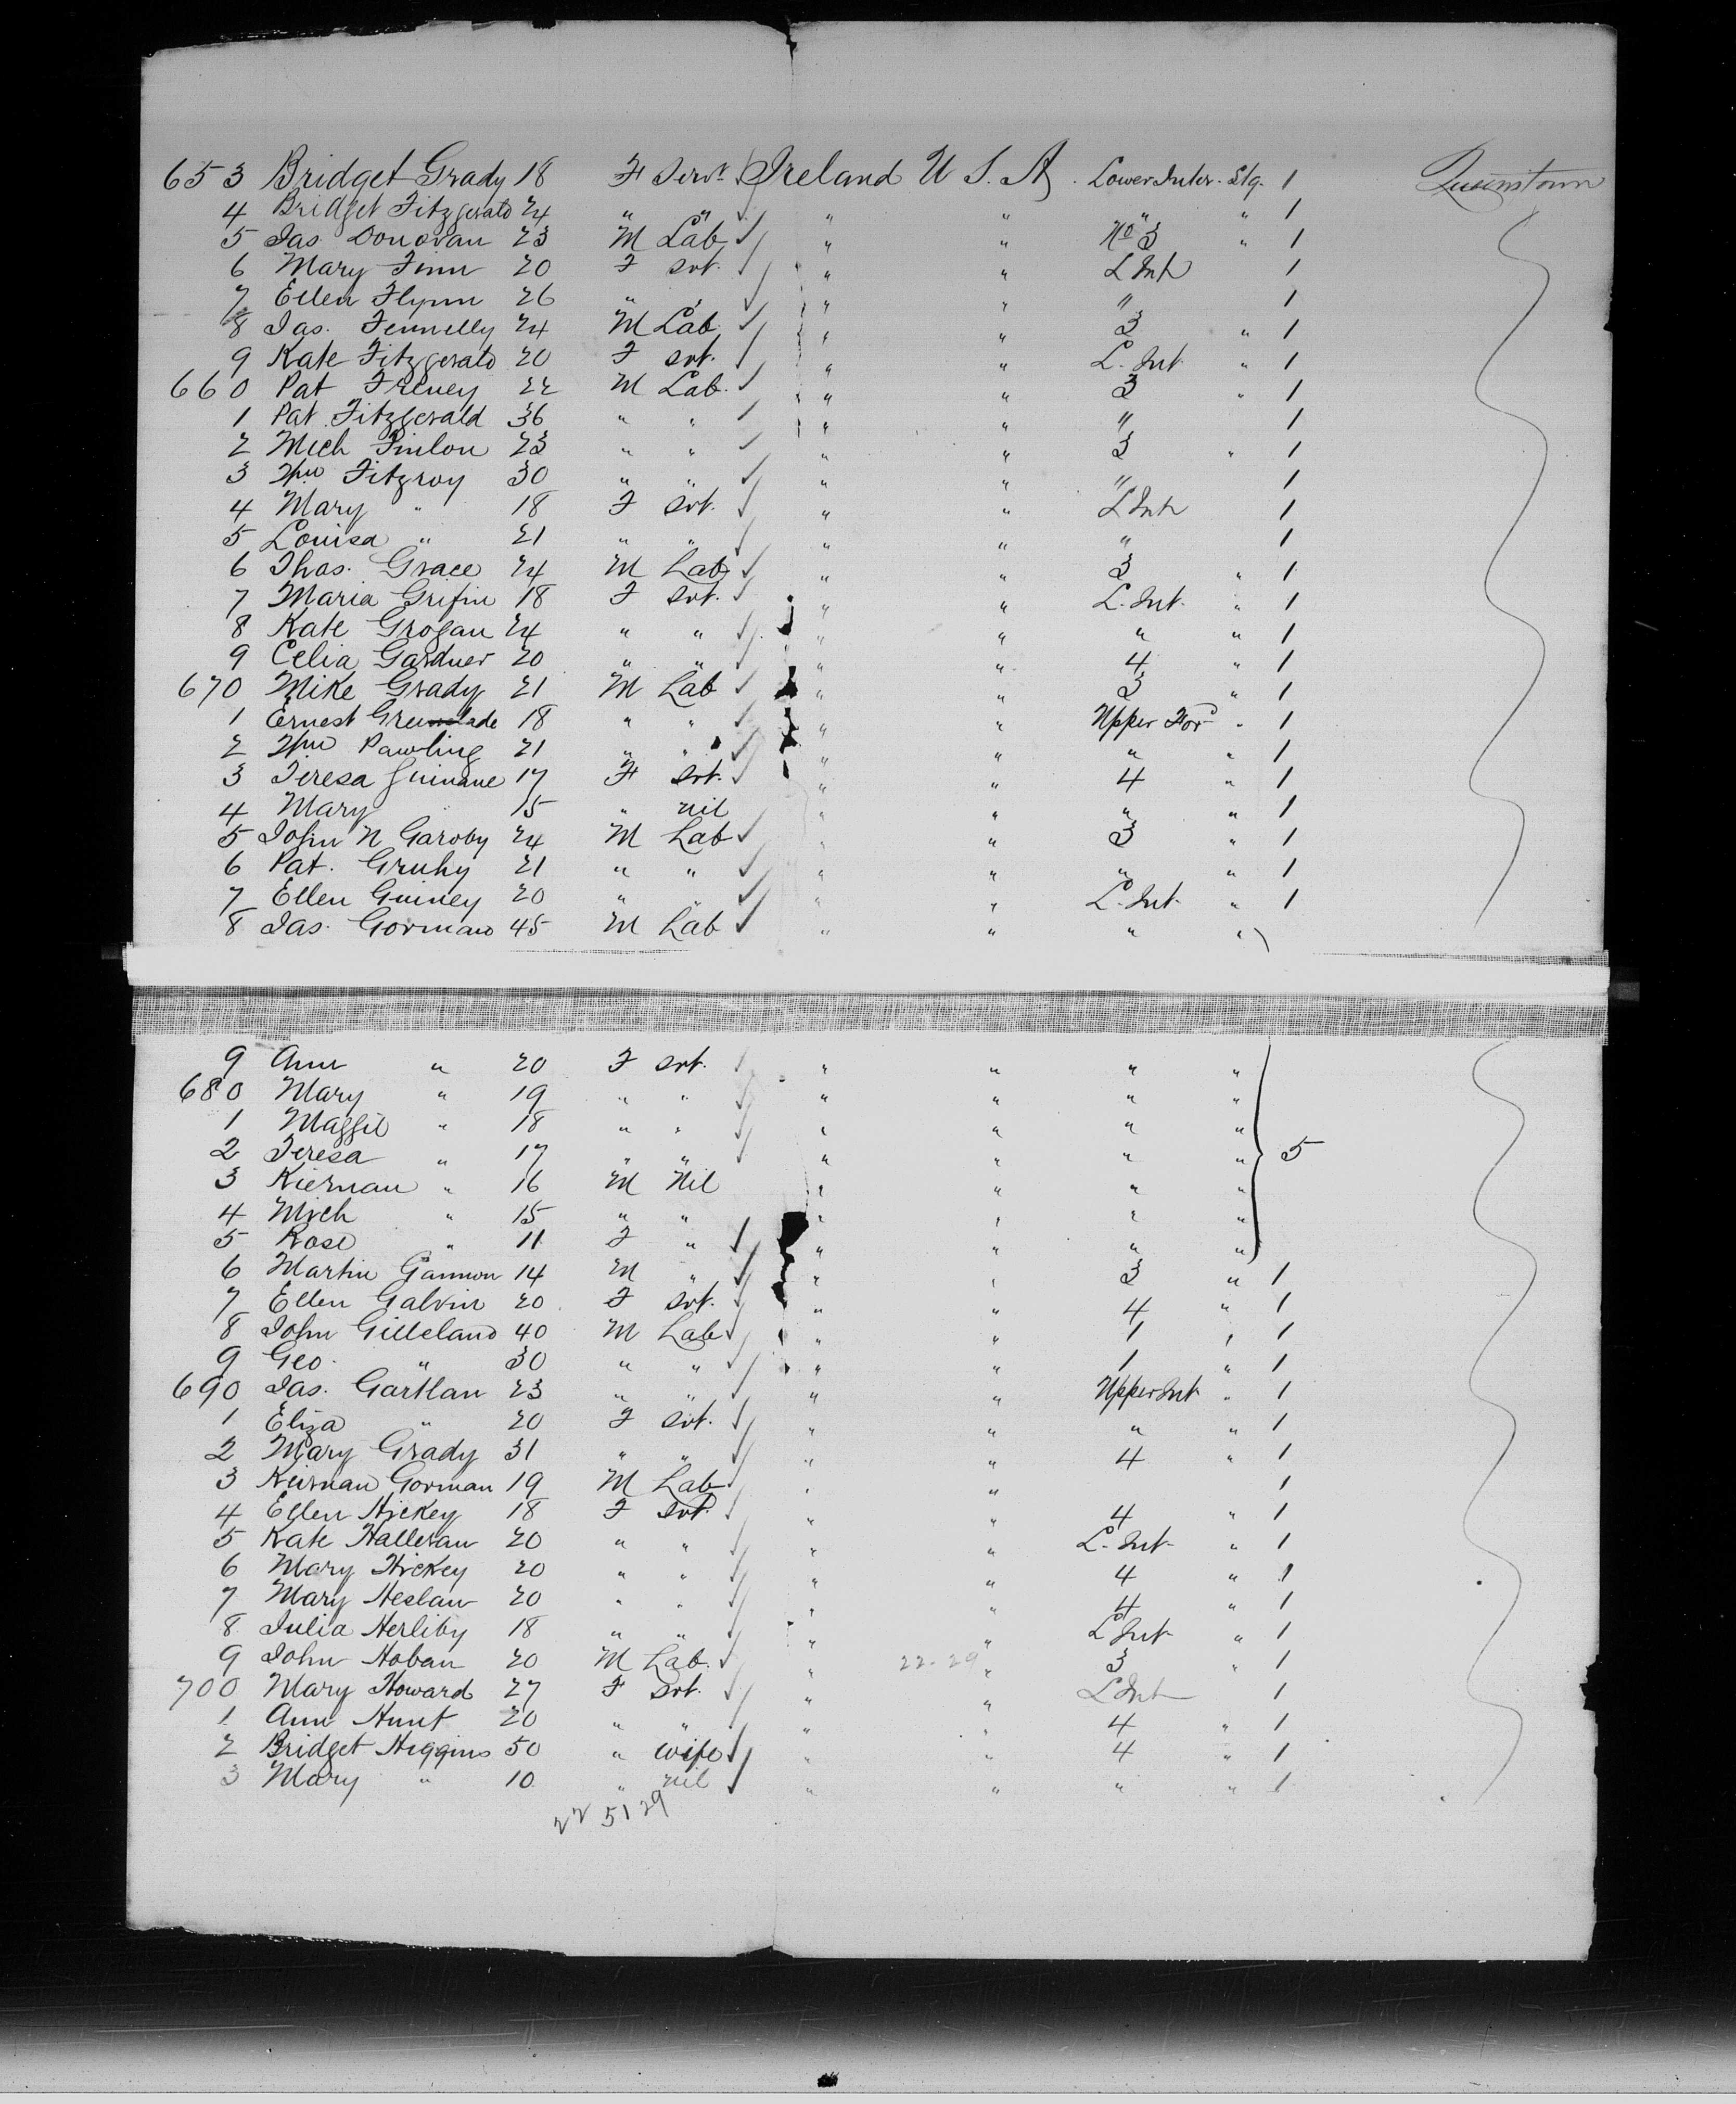 653 Bridget Grady 18 F Servt Ireland U S. A. Lower Inter. Stg. 1 Queenstown
4 Bridget Fitzgerald 24 " " " " " " 1
5 Jas. Donovan 23 M Lab " " No 3 " 1
6 Mary Finn 20 F svt. " " L Int 1
7 Ellen Flynn 26 " " " " " 1
8 Jas. Fennelly 24 M Lab " " 3 " 1
9 Kate Fitzgerald 20 F svt. " " L. Int " 1
660 Pat Freney 22 M Lab. " " 3 " 1
1 Pat Fitzgerald 36 " " " " " 1
2 Mich Finlon 23 " " " " 3 " 1
3 Wm Fitzroy 30 " " " " " 1
4 Mary " 18 F svt. " " L Int 1
5 Louisa " 21 " " " " " 1
6 Thos. Grace 24 M Lab " " 3 " 1
7 Maria Grifin 18 F svt. " " L. Int. " 1
8 Kate Grogan 24 " " " " " " 1
9 Celia Gardner 20 " " " " 4 " 1
670 Mike Grady 21 M Lab " " 3 " 1
1 Ernest 18 " " " " Upper For " 1
2 Wm Pawling 21 " " " " " " 1
3 Teresa Guinane 17 F svt. " " 4 " 1
4 Mary 15 " nil " " " " 1
5 John N Garoby 24 M Lab " " 3 " 1
6 Pat. Gruhy 21 " " " " " " 1
7 Ellen Guiney 20 " " " " L. Int " 1
8 Jas. Gorman 45 M Lab " " " "
9 Ann " 20 F svt. " " " "
680 Mary " 19 " " " " " "
1 Maggie " 18 " " " " " "
2 Teresa " 17 " " " " " " 5
3 Kiernan " 16 M Nil " " " "
4 Mich " 15 " " " " " "
5 Rose " 11 F " " " " "
6 Martin Gannon 14 M " " " 3 " 1
7 Ellen Galvin 20 F svt. " " 4 " 1
8 John Gilleland 40 M Lab " " 1 " 1
9 Geo. " 30 " " " " 1 " 1
690 Jas. Gartlan 23 " " " " Upper Int " 1
1 Eliza " 20 F svt. " " " " 1
2 Mary Grady 31 " " " " 4 " 1
3 Kiernan Gorman 19 M Lab " " 1
4 Ellen Hickey 18 F svt " " 4 " 1
5 Kate Halleran 20 " " " " L. Int " 1
6 Mary Hickey 20 " " " " 4 " 1
7 Mary Heslan 20 " " " " 4 " 1
8 Julia Herlihy 18 " " " " L Int " 1
9 John Hoban 20 M Lab. " 22-29 " 3 " 1
700 Mary Howard 27 F svt. " " L Int 1
1 Ann Hunt 20 " " " " 4 " 1
2 Bridget Higgins 50 " wife " " 4 " 1
3 Mary " 10 " nil " " " " 1
22 51 29